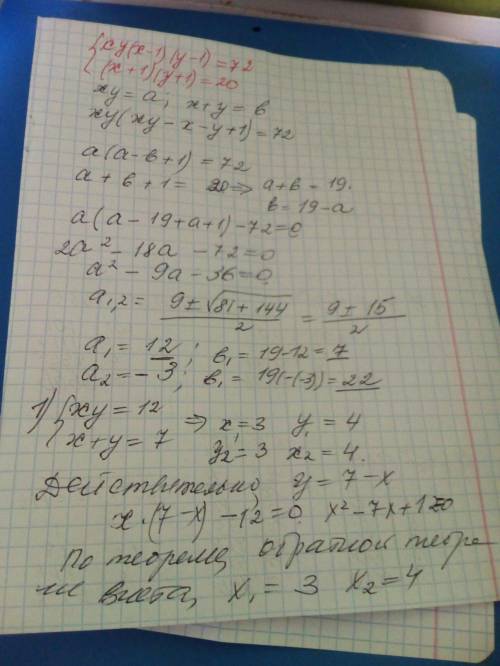 {xy(x-1)(y-1)=72
(x+1)(y+1)=20
xy=a; x+y=в
xy(xy-x-y+1)=72
a(a-в+1)=72
a+в+1= 20 ⇒ a+в=19.
в=19-a
a(a-19+a+1)-72=0
2a²-18a-72=0
a²-9a-36=0
a₁,₂= (9±√(81+144))/2 = (9±15)/2
a₁=12; в₁=19-12=7
a₂=-3; в₁=19(-(-3))=22
1) {xy=12
x+y=7 ⇒ x₁=3 y₁=4
y₂=3 x₂=4.
Действительно, y=7-x
x·(7-x)-12=0 x²-7x+12=0
По теореме, обратной теоре
ме Виета, x₁=3 x₂=4